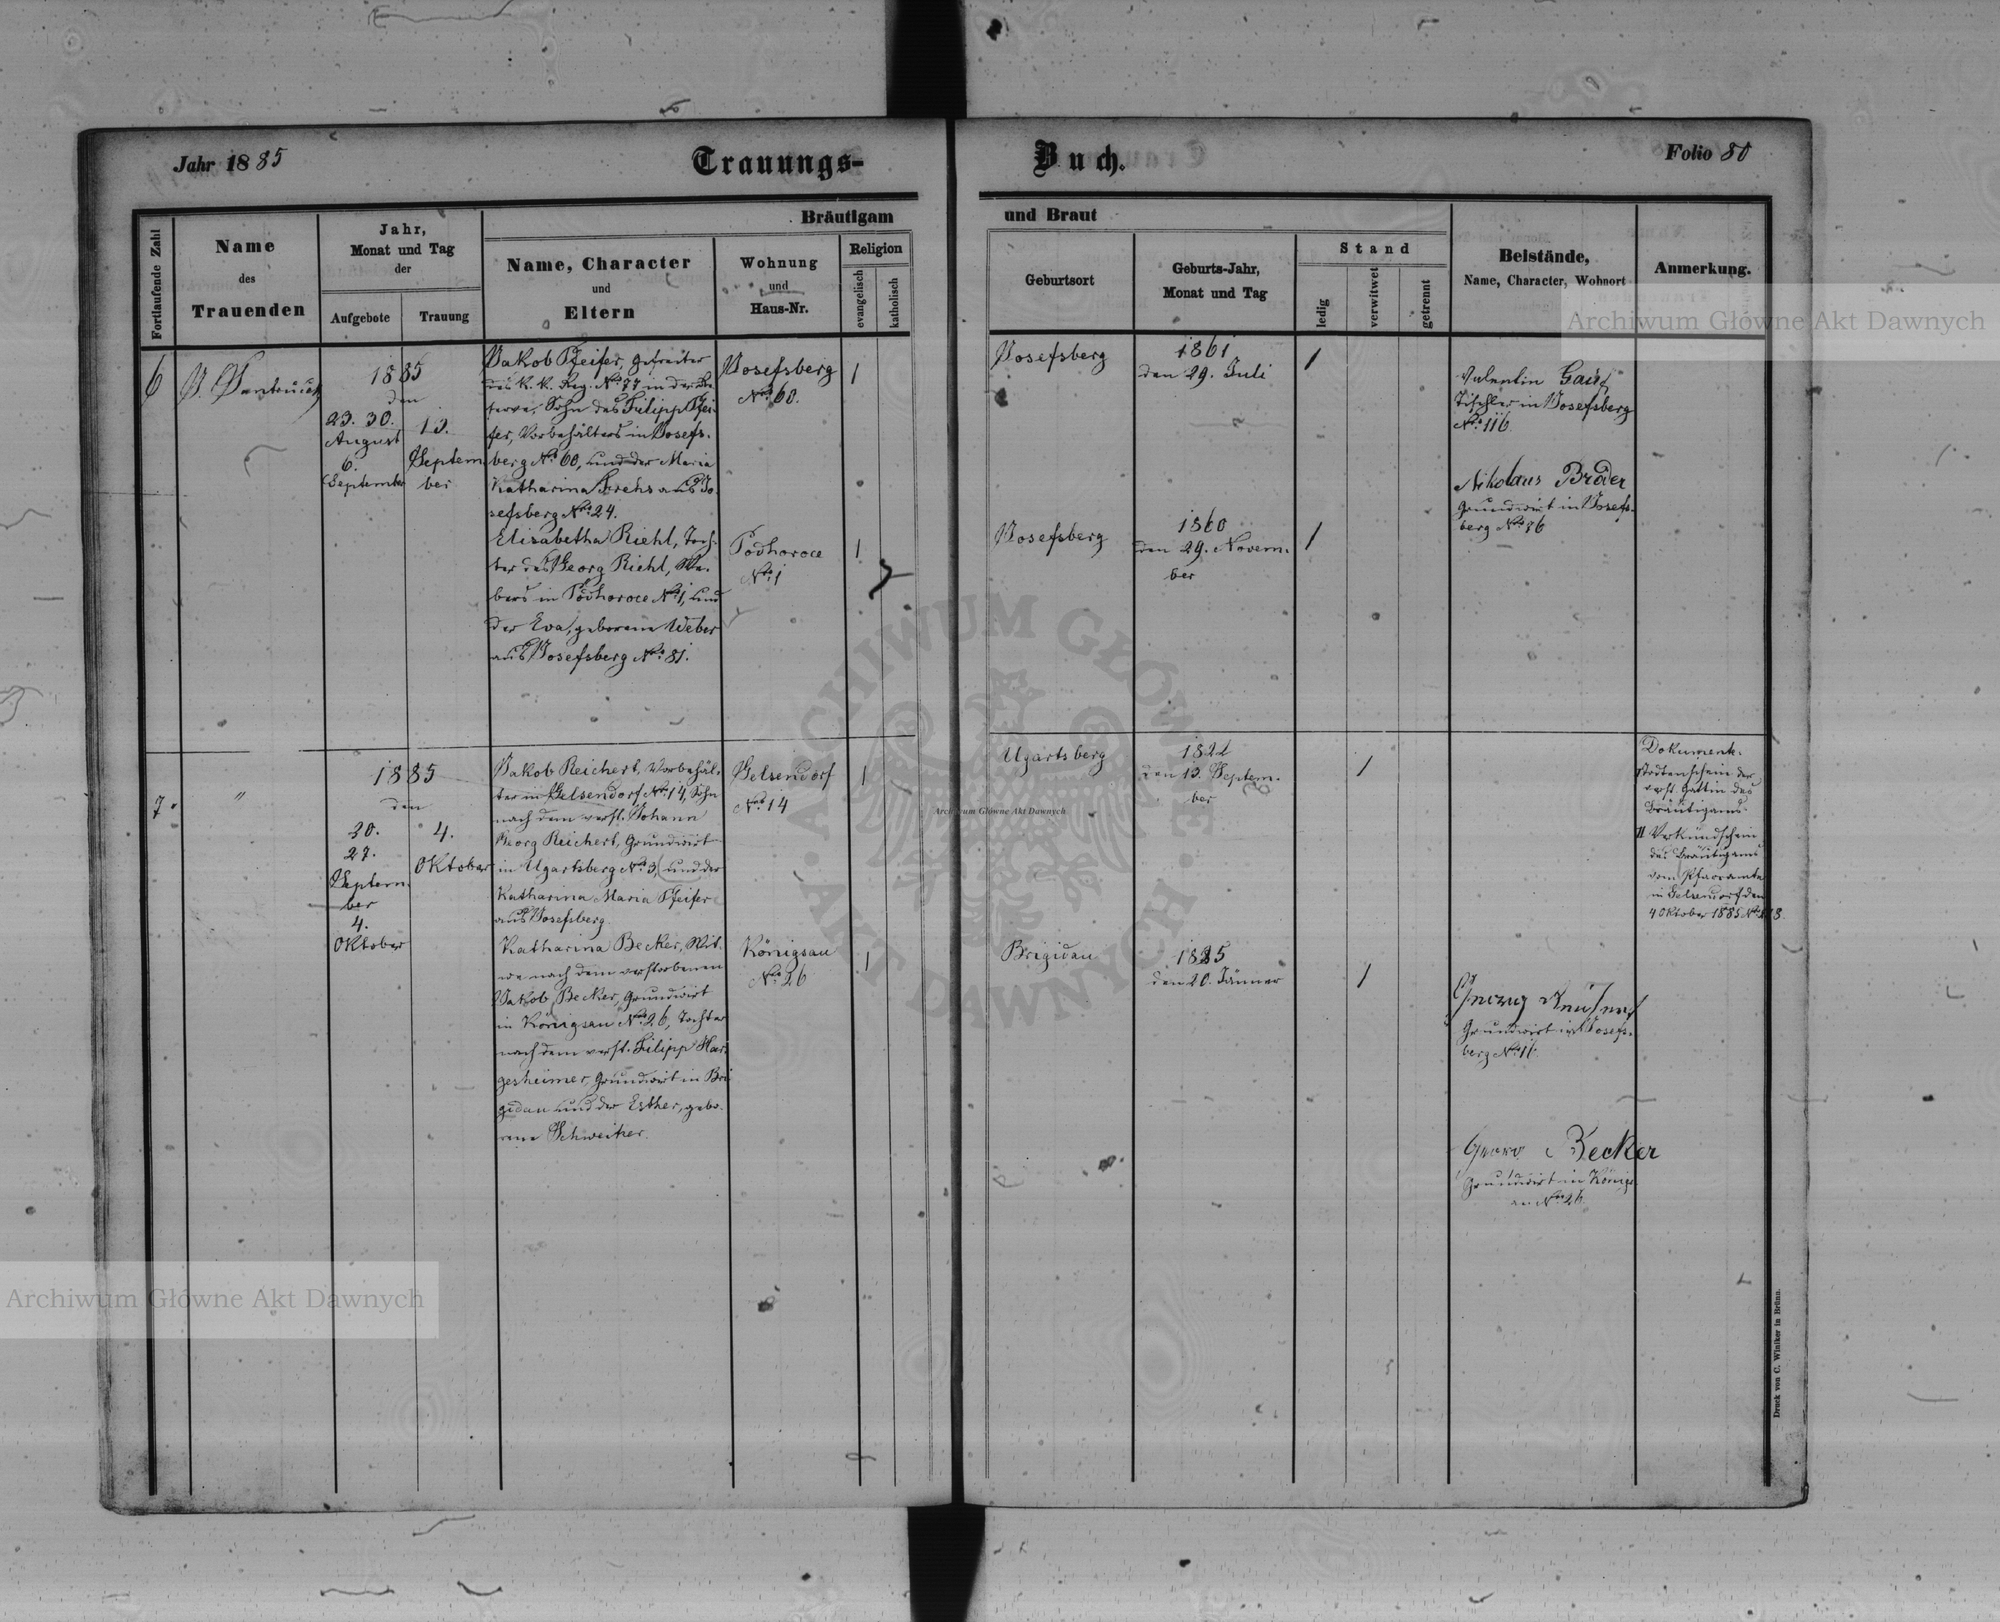 Jahr 1885
Trauungs-
Buch.
Folio 80
Fortlaufende Zahl
Name
des
Trauenden
Jahr,
Monat und Tag
der
Aufgebote
Trauung
Bräutigam
und Braut
Name, Character
und
Eltern
Wohnung
und
Haus-Nr.
Religion
evangelisch
katholisch
Geburtsort
Geburts-Jahr,
Monat und Tag
Stand
ledig
verwitwet
getrennt
Beistände,
Name, Character, Wohnort
Anmerkung.
6
1885
den
23. 30.
August
6.
September
13.
Septem
ber
Jakob Pfeifer, Gefreiter
des K. K. Reg. No 77 in der Re
serve, Sohn des Filipp Pfei
fer, Vorbehälters in Josefs-
berg No 60, und der Maria
Katharina aus Jo
sefsberg No 24.
Josefsberg
No 60.
1
Josefsberg
1861
den 29. Juli
1
Valentin
Tischler in Josefsberg
No 116
Nikolaus Bröder
Grundwirt in Josefs-
berg No 36
Elisabetha Riehl, Toch-
ter des Georg Riehl, We-
bers in Podhoroce No 1, und
der Eva, geborene Weber
aus Josefsberg No 81.
Podhoroce
No 1
1
Josefsberg
1860
den 29. Novem-
ber
1
7.
"
1885
den
20.
27.
Septem-
ber
4.
Oktober
4.
Oktober
Jakob Reichert, Vorbehäl-
ter in Gelsendorf No 14, Sohn
nach dem verst. Johann
Georg Reichert, Grundwirt
in Ugartsberg No 3, und der
Katharina Maria Pfeifer
aus Josefsberg.
Gelsendorf
No 14
1
Ugartsberg
1822
den 13. Septem-
ber
1
Dokument.
Todtenschein der
verst. Gattin des
Bräutigams.
II Verkündschein
des Bräutigams
vom Pfarramte
in Gelsendorf den
4 Oktober 1885 No
Katharina Becker, Wit-
we nach dem verstorbenen
Jakob Becker, Grundwirt
in Königsau No 26, Tochter
nach dem verst. Filipp Har
gesheimer, Grundwirt in Bri
gidau und der Esther, gebo-
rene Schweitzer.
Königsau
No 26
1
Brigidau
1825
den 20. Jänner
1
Grundwirt in Josefs-
berg No 11.
Georg Becker
Grundwirt in Königs
au No 26
Druck von C. Winiker in Brünn.
Archiwum Główne Akt Dawnych
Archiwum Główne Akt Dawnych
Archiwum Główne Akt Dawnych
ARCHIWUM GŁÓWNE
AKT DAWNYCH